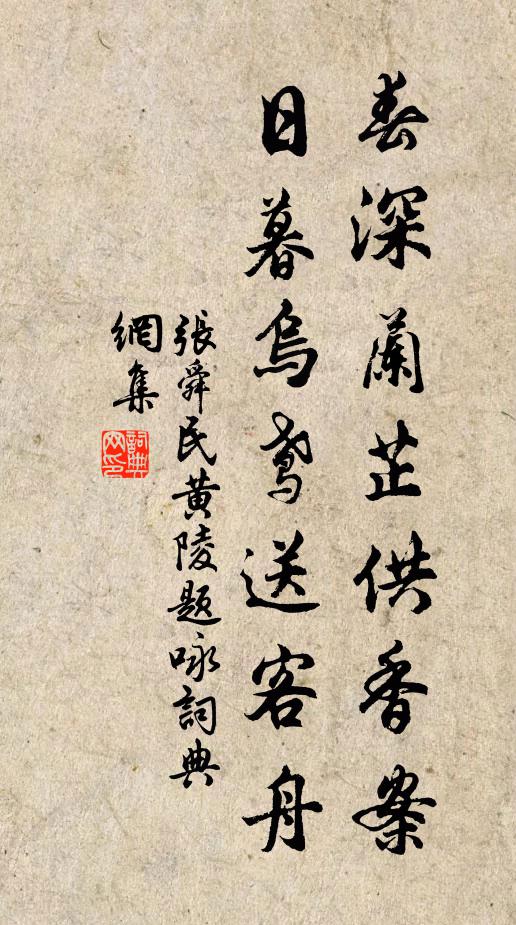 春深蘭芷供香案
日暮烏鳶送客舟
張舜民黃陵題咏詞典
網集
詞典
网印